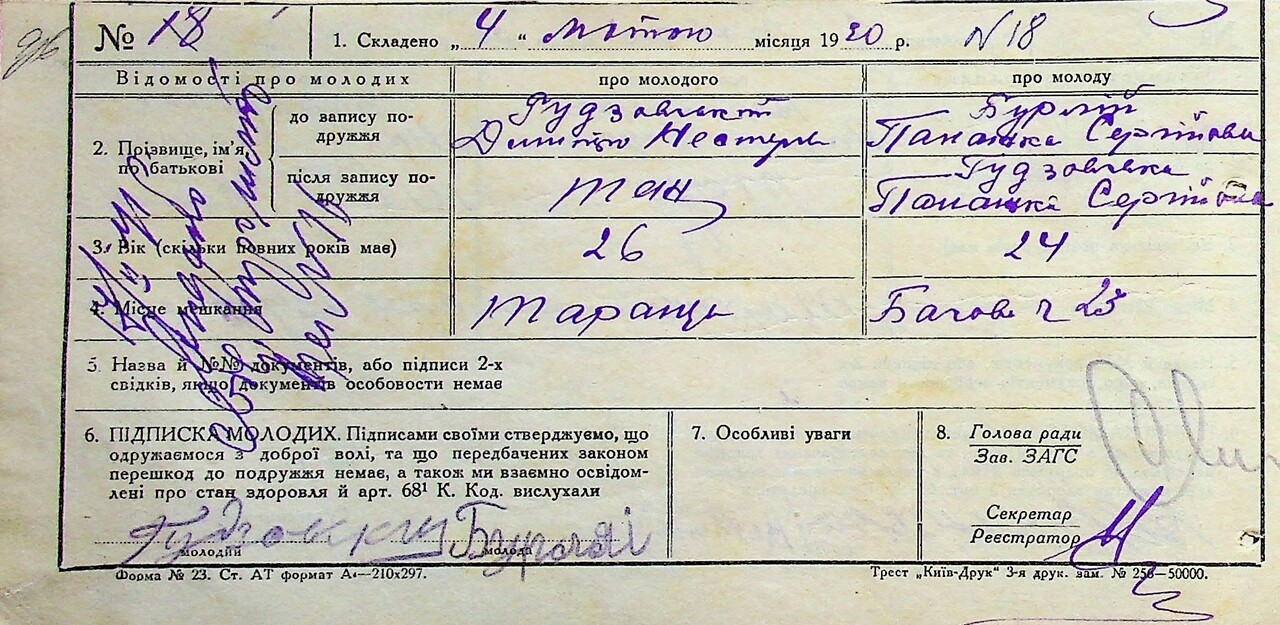 № 18 1. Складено „ 4 “ лютого місяця 1930 р. N 18
Відомості про молодих про молодого про молоду
2. Прізвище, ім'я, по батькові
до запису подружжя
Гудзовський
Дмитро Нестер.
Бурлій
Панашка Сергіївна
після запису подружжя
так
Гудзовська
Панашка Сергіївна
3. Вік (скільки повних років має) 26 24
4. Місце мешкання Тараща
5. Назва й №№ документів, або підписи 2-х
свідків, якщо документів особовости немає
6. ПІДПИСКА МОЛОДИХ. Підписами своїми стверджуємо, що
одружаємося з доброї волі, та що передбачених законом
перешкод до подружжя немає, а також ми взаємно освідом-
лені про стан здоровля й арт. 68¹ К. Код. вислухали
Гудзовский
молодий
молода
7. Особливі уваги
8. Голова ради
Зав. ЗАГС
Секретар
Реєстратор
Форма № 23. Ст. АТ формат А4—210х297.
Трест „Київ-Друк“ 3-я друк. зам. № 256—50000.